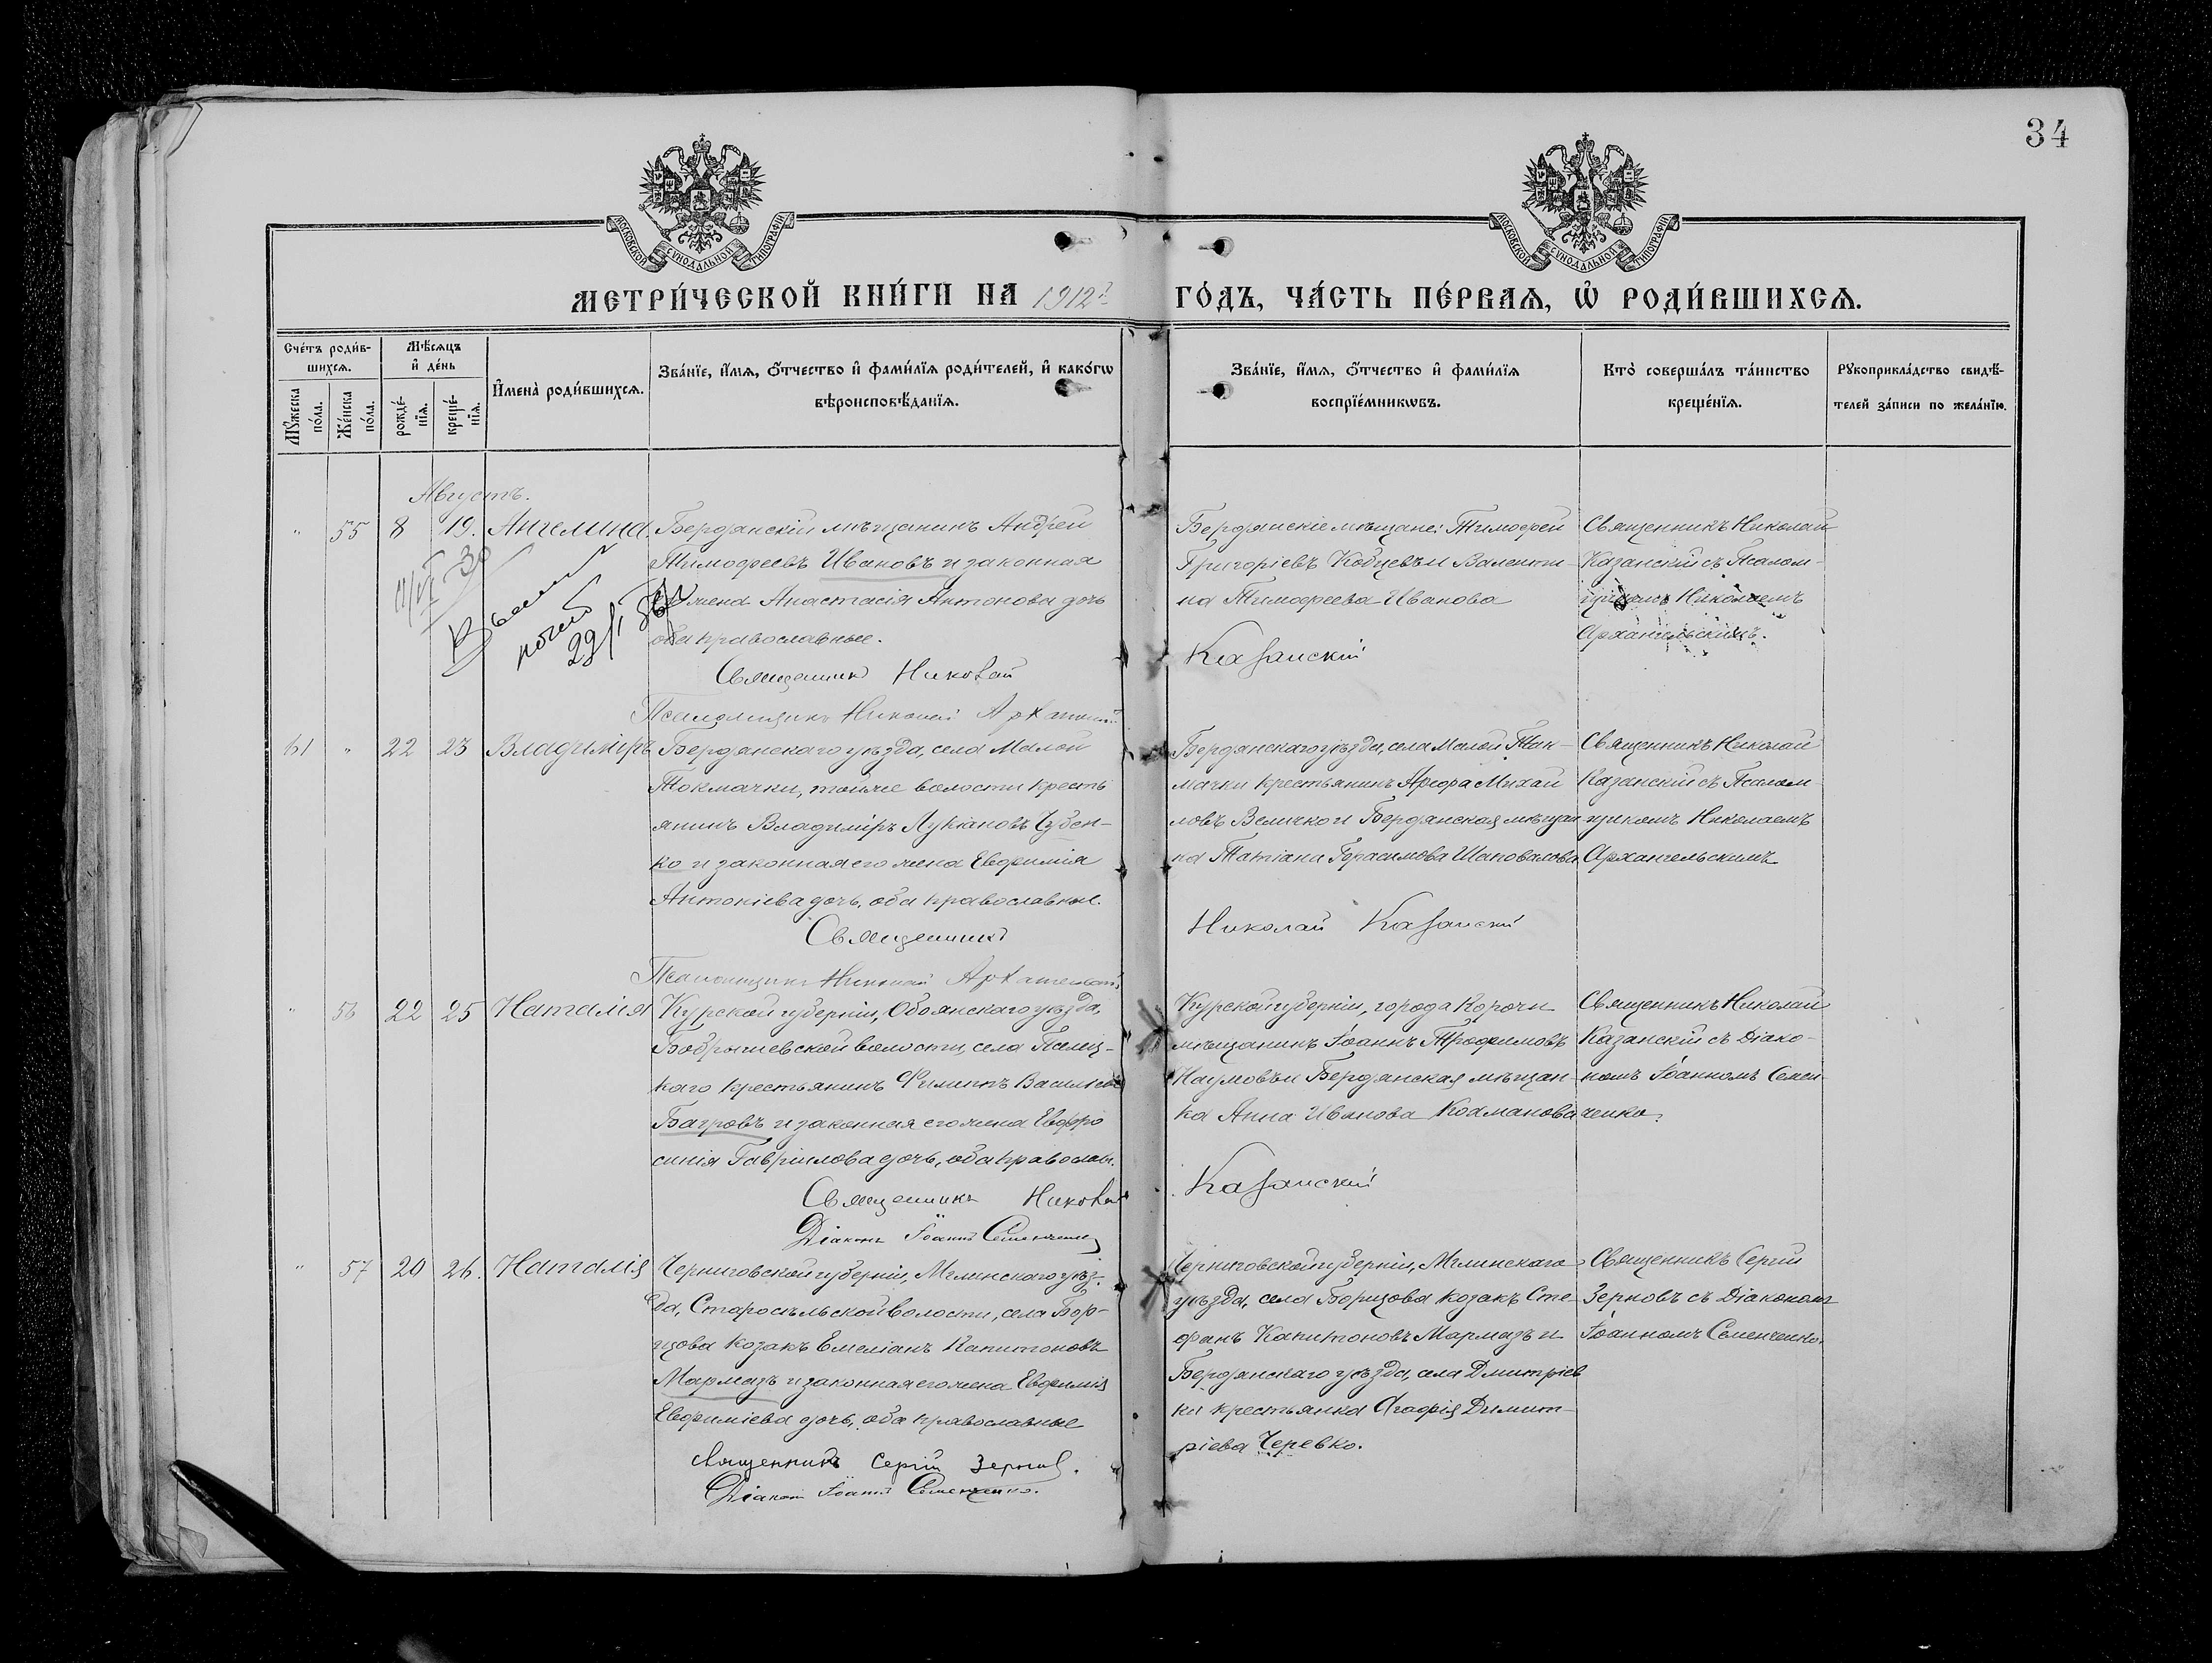 34
МОСКОВСКОЙ СУНОДАЛЬНОЙ ТИПОГРАФІИ
МОСКОВСКОЙ СУНОДАЛЬНОЙ ТИПОГРАФІИ
МЕТРИ́ЧЕСКОЙ КНИ́ГИ НА 1912й ГО́ДЪ, ЧА́СТЬ ПЕ́РВАѦ, Ѿ РОДИ́ВШИХСѦ.
Сче́тъ роди́в-
шихсѧ.
Мꙋ́жеска по́ла.
Же́нска по́ла.
Мѣ́сѧцъ
и҆ де́нь
рожде́-
нїѧ.
креще́-
нїѧ.
И҆мена̀ роди́вшихсѧ.
Зва́нїе, и҆́мѧ, ѻ҆́тчество и҆ фами́лїѧ роди́телей, и҆ како́гѡ
вѣроисповѣ́данїѧ.
Зва́нїе, и҆́мѧ, ѻ҆́тчество и҆ фами́лїѧ
воспрїе́мникѡвъ.
Кто̀ соверша́лъ та́инство
креще́нїѧ.
Рꙋкоприкла́дство свидѣ́-
телей за́писи по жела́нїю.
Августъ.
" 55 8 19. Ангелина.
Бердянскій мѣщанинъ Андрей
Тимофеевъ Ивановъ и законная
жена Анастасія Антонова дочь
оба православные.
Священникъ Николай
Псаломщикъ Николай
11/VI 30
29/I
Бердянскіе мѣщане: Тимофей
Григоріевъ Кобцевъ и Валенти-
на Тимофеева Иванова
Казанскій
Священникъ Николай
Казанскій съ Псалом-
щикомъ Николаемъ
Архангельскимъ.
61 " 22 23 Владиміръ
Бердянскаго уѣзда, села Малой
Токмачки, тойже волости кресть
янинъ Владиміръ Лукіановъ Губен-
ко и законная его жена Евфимія
Антоніева дочь, оба православные.
Священникъ
Псаломщикъ Николай
Бердянскаго уѣзда, села Малой Ток-
мачки крестьянинъ Михаи
ловъ Величко и Бердянская мѣщан
ка Татіана Герасимова Шаповалова
Николай Казанскій
Священникъ Николай
Казанскій съ Псалом
щикомъ Николаемъ
Архангельскимъ
" 56 22 25 Наталія
Курской губерніи, Обоянскаго уѣзда,
Бобрышевской волости, села
крестьянинъ Филиппъ Василіевъ
Багровъ и законная его жена Евфро
синія Гавріилова дочь, оба православн.
Священникъ Николай
Діаконъ Іоаннъ Семенченко
Курской губерніи, города Корочи
мѣщанинъ Іоаннъ Трофимовъ
Наумовъ и Бердянская мѣщан-
ка Анна Иванова
Казанскій
Священникъ Николай
Казанскій съ Діако-
номъ Іоанномъ Семен-
ченко.
" 57 20 26. Наталія
Черниговской губерніи, Мглинскаго уѣз-
да, Старосѣльской волости, села Бор-
щова козакъ Емеліанъ Капитоновъ
Мармазъ и законная его жена Евфимія
Евфиміева дочь, оба православные
Священникъ Сергій Зерновъ.
Діаконъ Іоаннъ Семенченко.
Черниговской губерніи, Мглинскаго
уѣзда, села Борщова козакъ Сте-
фанъ Капитоновъ Мармазъ и
Бердянскаго уѣзда, села Дмитріев
ки крестьянка Агафія Димит-
ріева Черевко.
Священникъ Сергій
Зерновъ съ Діакономъ
Іоанномъ Семенченко.